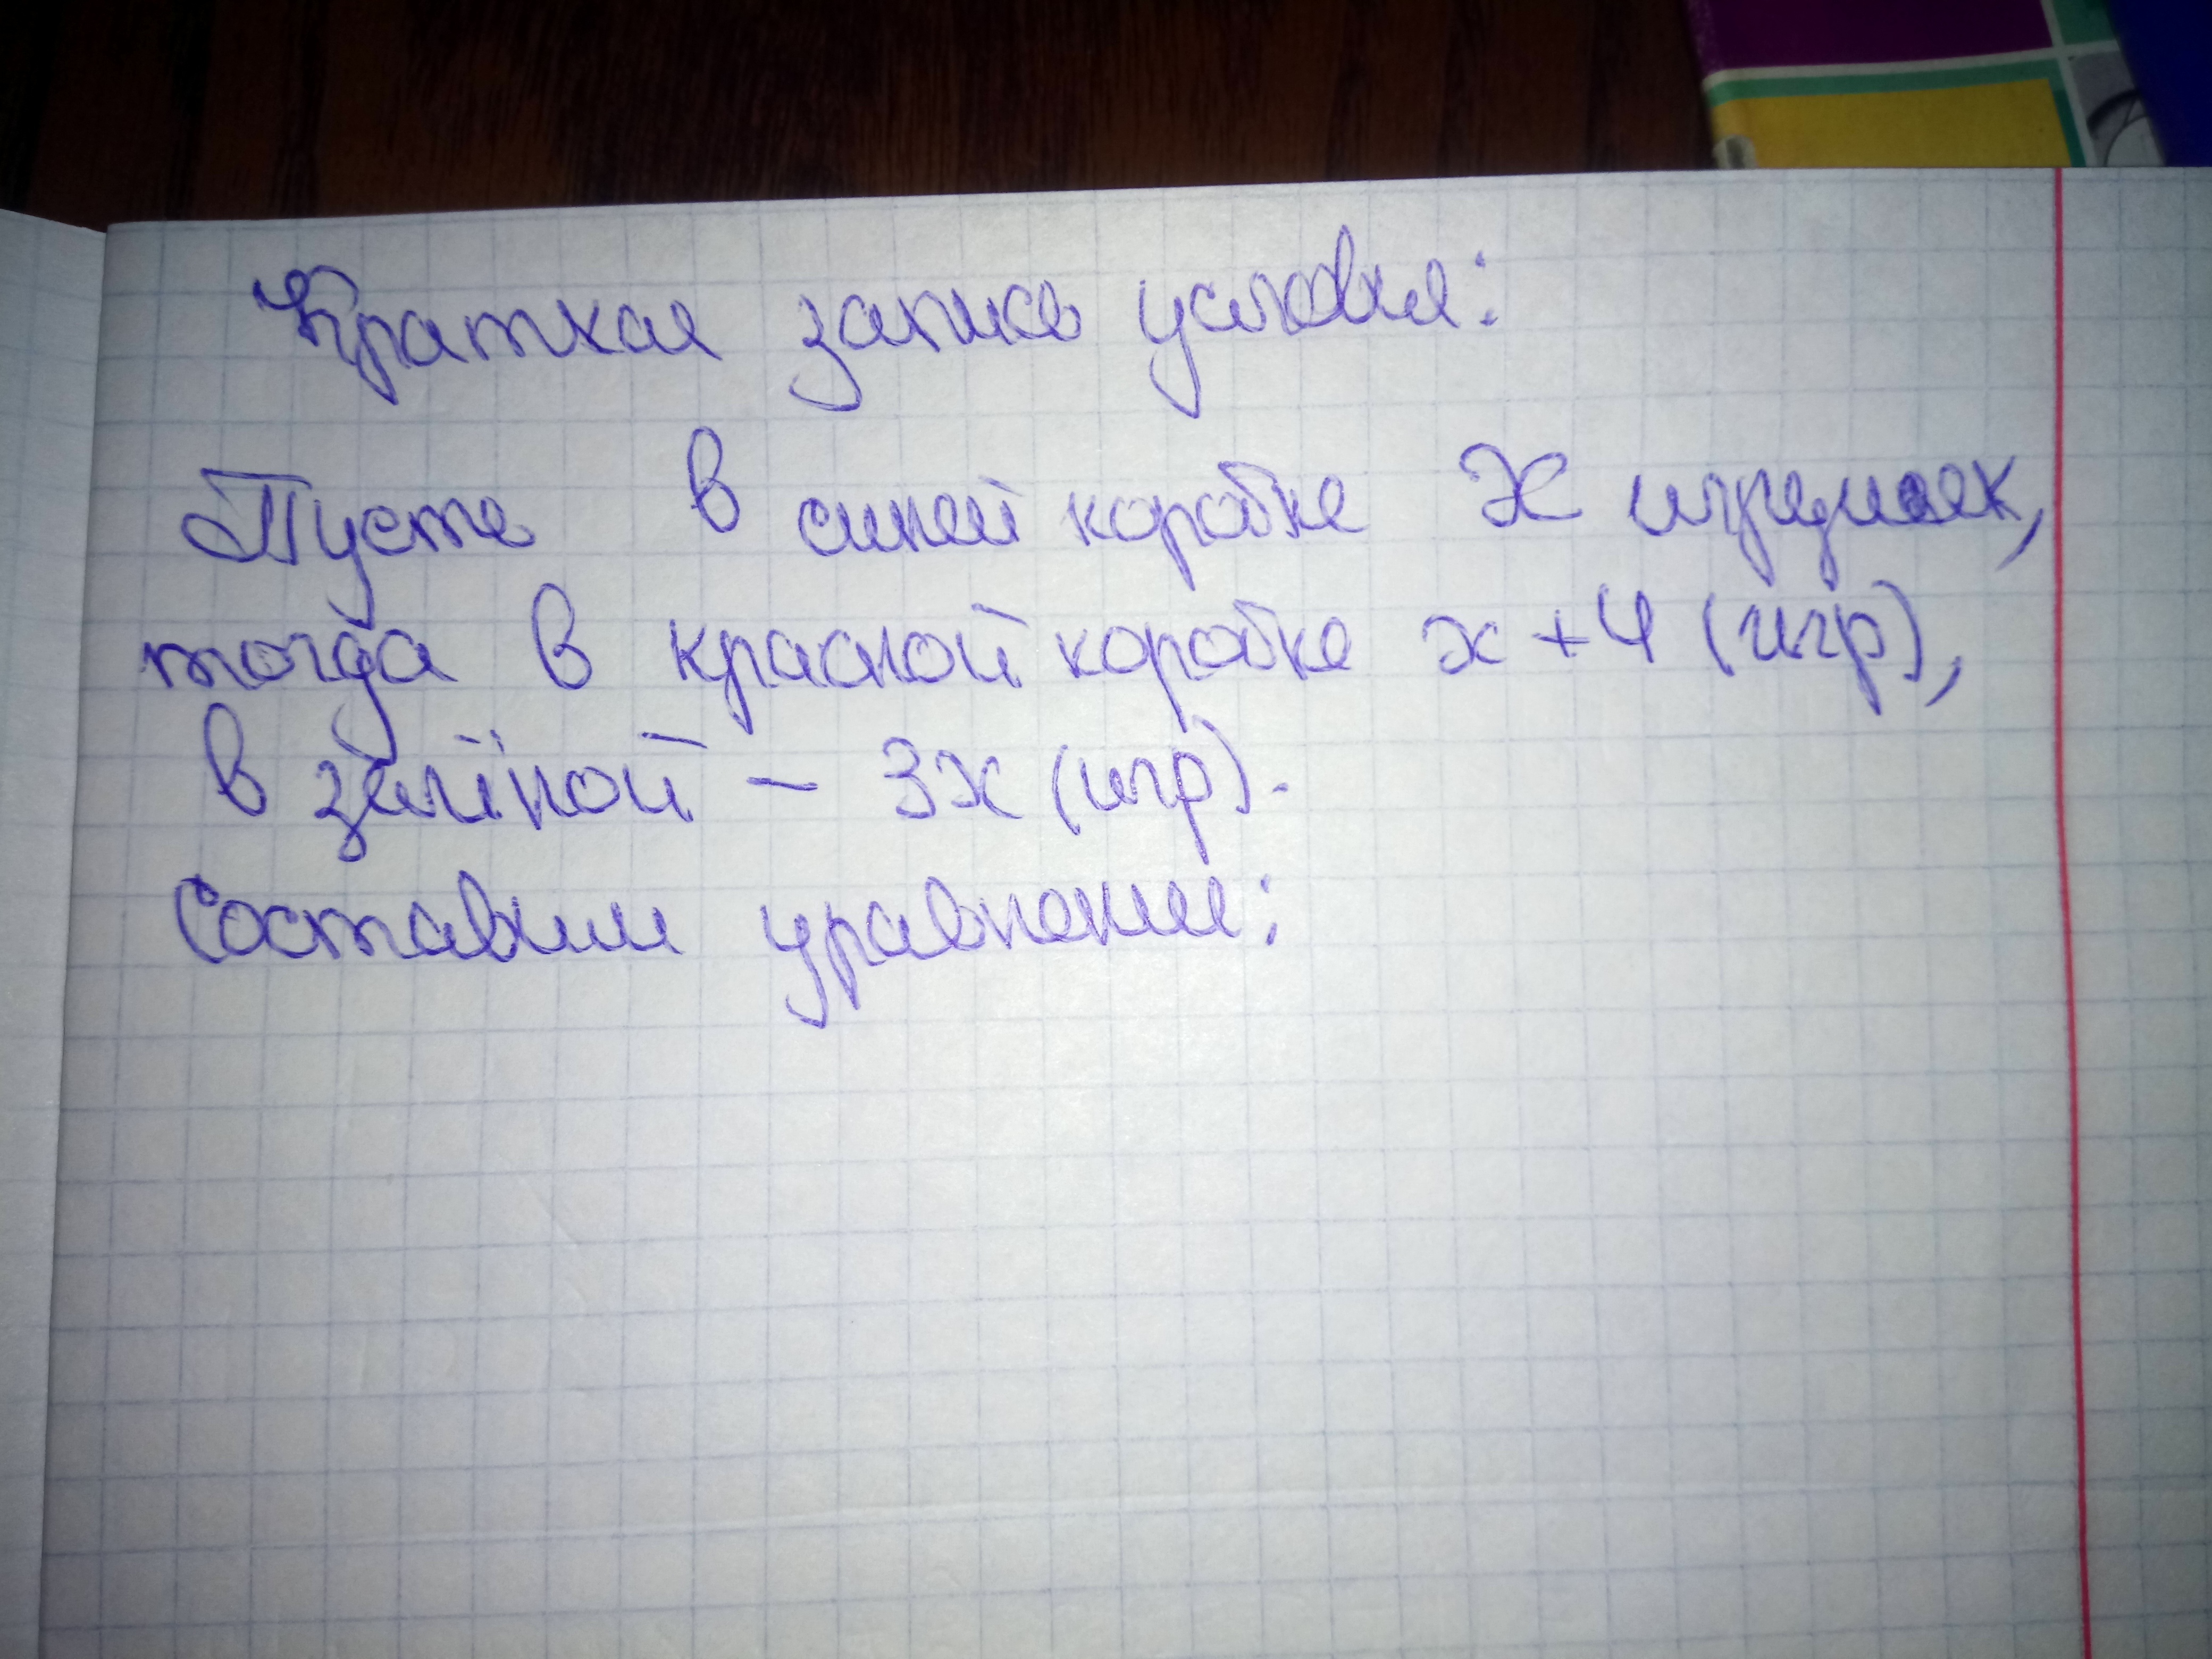 Краткая запись условия:
Пусть в синей коробке x игрушек,
тогда в красной коробке x + 4 (игр),
в зелёной - 3x (игр).
Составим уравнение: